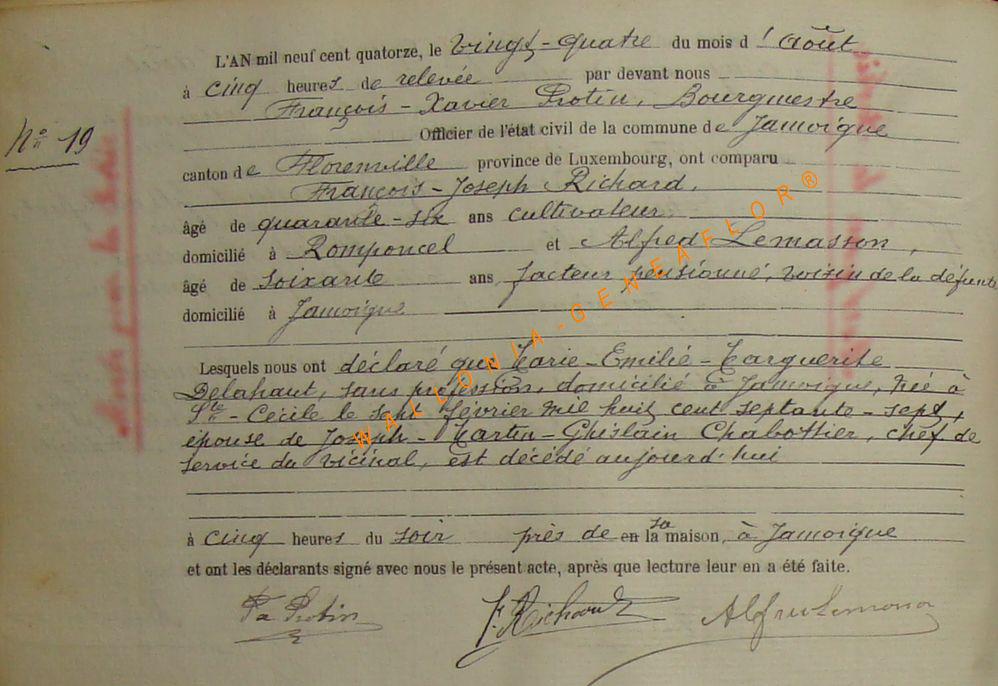 L'AN mil neuf cent quatorze, le vingt-quatre du mois d'Août
à cinq heures de relevée par devant nous
François-Xavier Protin, Bourgmestre
Officier de l'état civil de la commune de Jamoigne
N° 19
canton de Florenville province de Luxembourg, ont comparu
François-Joseph Richard,
âgé de quarante-six ans cultivateur
domicilié à Romponcel et Alfred Lemasson,
âgé de soixante ans, facteur pensionné, voisin de la défunte
domicilié à Jamoigne
Lesquels nous ont déclaré que Marie-Emilie-Marguerite
Delahaut, sans profession, domicilié à Jamoigne, née à
Ste-Cécile le sept février mil huit cent septante-sept,
épouse de Joseph-Martin-Ghislain Chabottier, chef de
service du vicinal, est décédé aujourd'hui
à cinq heures du soir près de en la sa maison, à Jamoigne
et ont les déclarants signé avec nous le présent acte, après que lecture leur en a été faite.
Fx Protin F. Richard Alfred Lemasson
WALLONIA-GENEAFLOR®